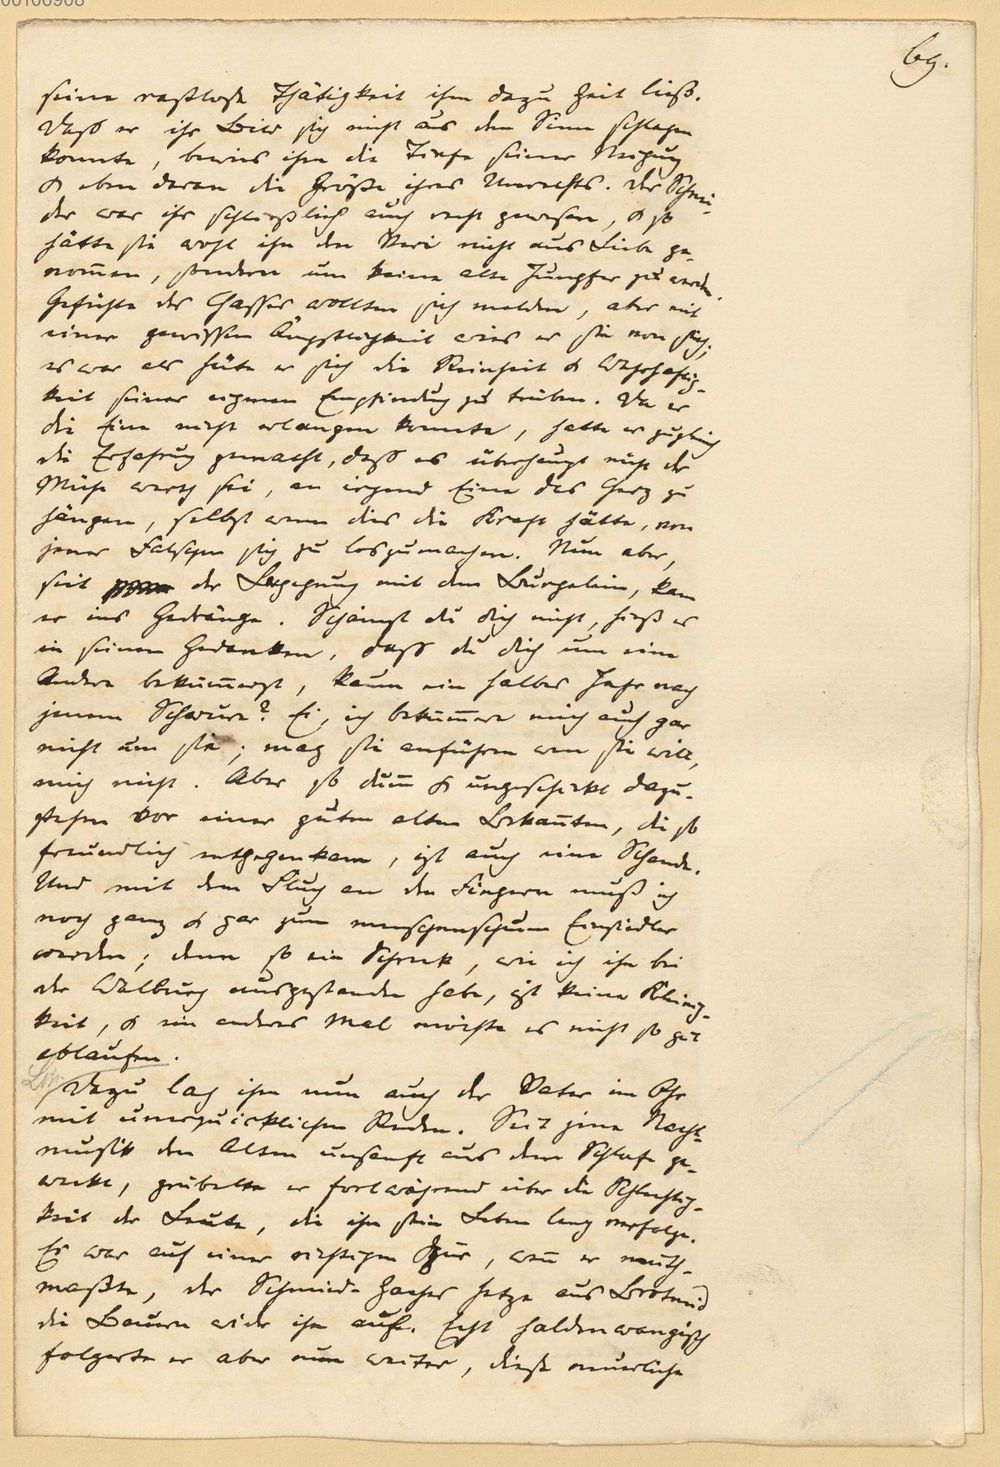 00106908
69.
seine rastlose Thätigkeit ihm dazu Zeit ließ.
Daß er ihr Bild sich nicht aus dem Sinn schlagen
konnte, bewies ihm die Tiefe seiner Neigung
& eben daran die Größe ihres Unrechts. Der Schnei-
der war ihr schließlich auch recht gewesen, & so
hätte sie wohl ihn den Veri nicht aus Liebe ge-
nom̄en, sondern um keine alte Jungfer zu werden.
Gefühle des Hasses wollten sich melden, aber mit
einer gewissen Ängstlichkeit wies er sie von sich;
es war als hüte er sich die Reinheit & Wahrhaftig-
keit seiner eigenen Empfindung zu trüben. Da er
die Eine nicht erlangen konnte, hatte er zugleich
die Erfahrung gemacht, daß es überhaupt nicht der
Mühe werth sei, an irgend Eine das Herz zu
hängen, selbst wenn dies die Kraft hätte, von
jener Falschen sich zu loszumachen. Nun aber,
seit der Begegnung mit dem Burgelein, kam
er ins Gedränge. Schämst du dich nicht, hieß es
in seinen Gedanken, daß du dich um eine
Andere beküm̄erst, kaum ein halbes Jahr nach
jenem Schwure? Ei, ich beküm̄ere mich auch gar
nicht um sie; mag sie anführen wen sie will,
mich nicht. Aber so dum̄ & ungeschickt dazu-
stehen vor einer guten alten Bekan̄ten, die so
freundlich entgegenkam, ist auch eine Schande.
Und mit dem Fluch an den Fingern muß ich
noch ganz & gar zum menschenscheuen Einsiedler
werden; denn so ein Schreck, wie ich ihn bei
der Walburg ausgestanden habe, ist keine Kleinig-
keit, & ein anderes Mal möchte es nicht so gut
ablaufen.
Dazu lag ihm nun auch der Vater im Ohr
mit unerquicklichen Reden. Seit jene Nacht-
musik den Alten unsanft aus dem Schlafe ge-
weckt, grübelte er fortwährend über die Schlechtig-
keit der Leute, die ihn sein Leben lang verfolge.
Er war auf einer richtigen Spur, wen̄ er muth-
maßte, der Schmied-Zacher hetze aus Brotneid
die Bauern wider ihn auf. Echt haldenwangisch
folgerte er aber nun weiter, diese neuerliche